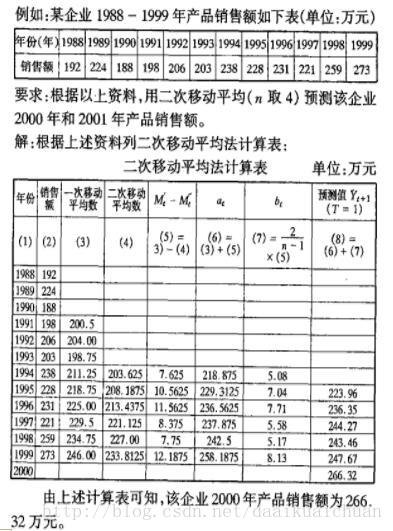 例如:某企业1988-1999年产品销售额如下表(单位:万元)
年份(年) 1988 1989 1990 1991 1992 1993 1994 1995 1996 1997 1998 1999
销售额 192 224 188 198 206 203 238 228 231 221 259 273
要求:根据以上资料,用二次移动平均(n取4)预测该企业
2000年和2001年产品销售额。
解:根据上述资料列二次移动平均法计算表:
二次移动平均法计算表 单位:万元
年份 销售额 一次移动平均数 二次移动平均数 M't - M"t at bt 预测值 Yt+1 (T=1)
(1) (2) (3) (4) (5)=3)-(4) (6)=(3)+(5) (7)=2/(n-1)×(5) (8)=(6)+(7)
1988 192
1989 224
1990 188
1991 198 200.5
1992 206 204.00
1993 203 198.75
1994 238 211.25 203.625 7.625 218.875 5.08
1995 228 218.75 208.1875 10.5625 229.3125 7.04 223.96
1996 231 225.00 213.4375 11.5625 236.5625 7.71 236.35
1997 221 229.5 221.125 8.375 237.875 5.58 244.27
1998 259 234.75 227.00 7.75 242.5 5.17 243.46
1999 273 246.00 233.8125 12.1875 258.1875 8.13 247.67
2000 266.32
由上述计算表可知,该企业2000年产品销售额为266.
32万元。
http://blog.csdn.net/daaikuaichuan